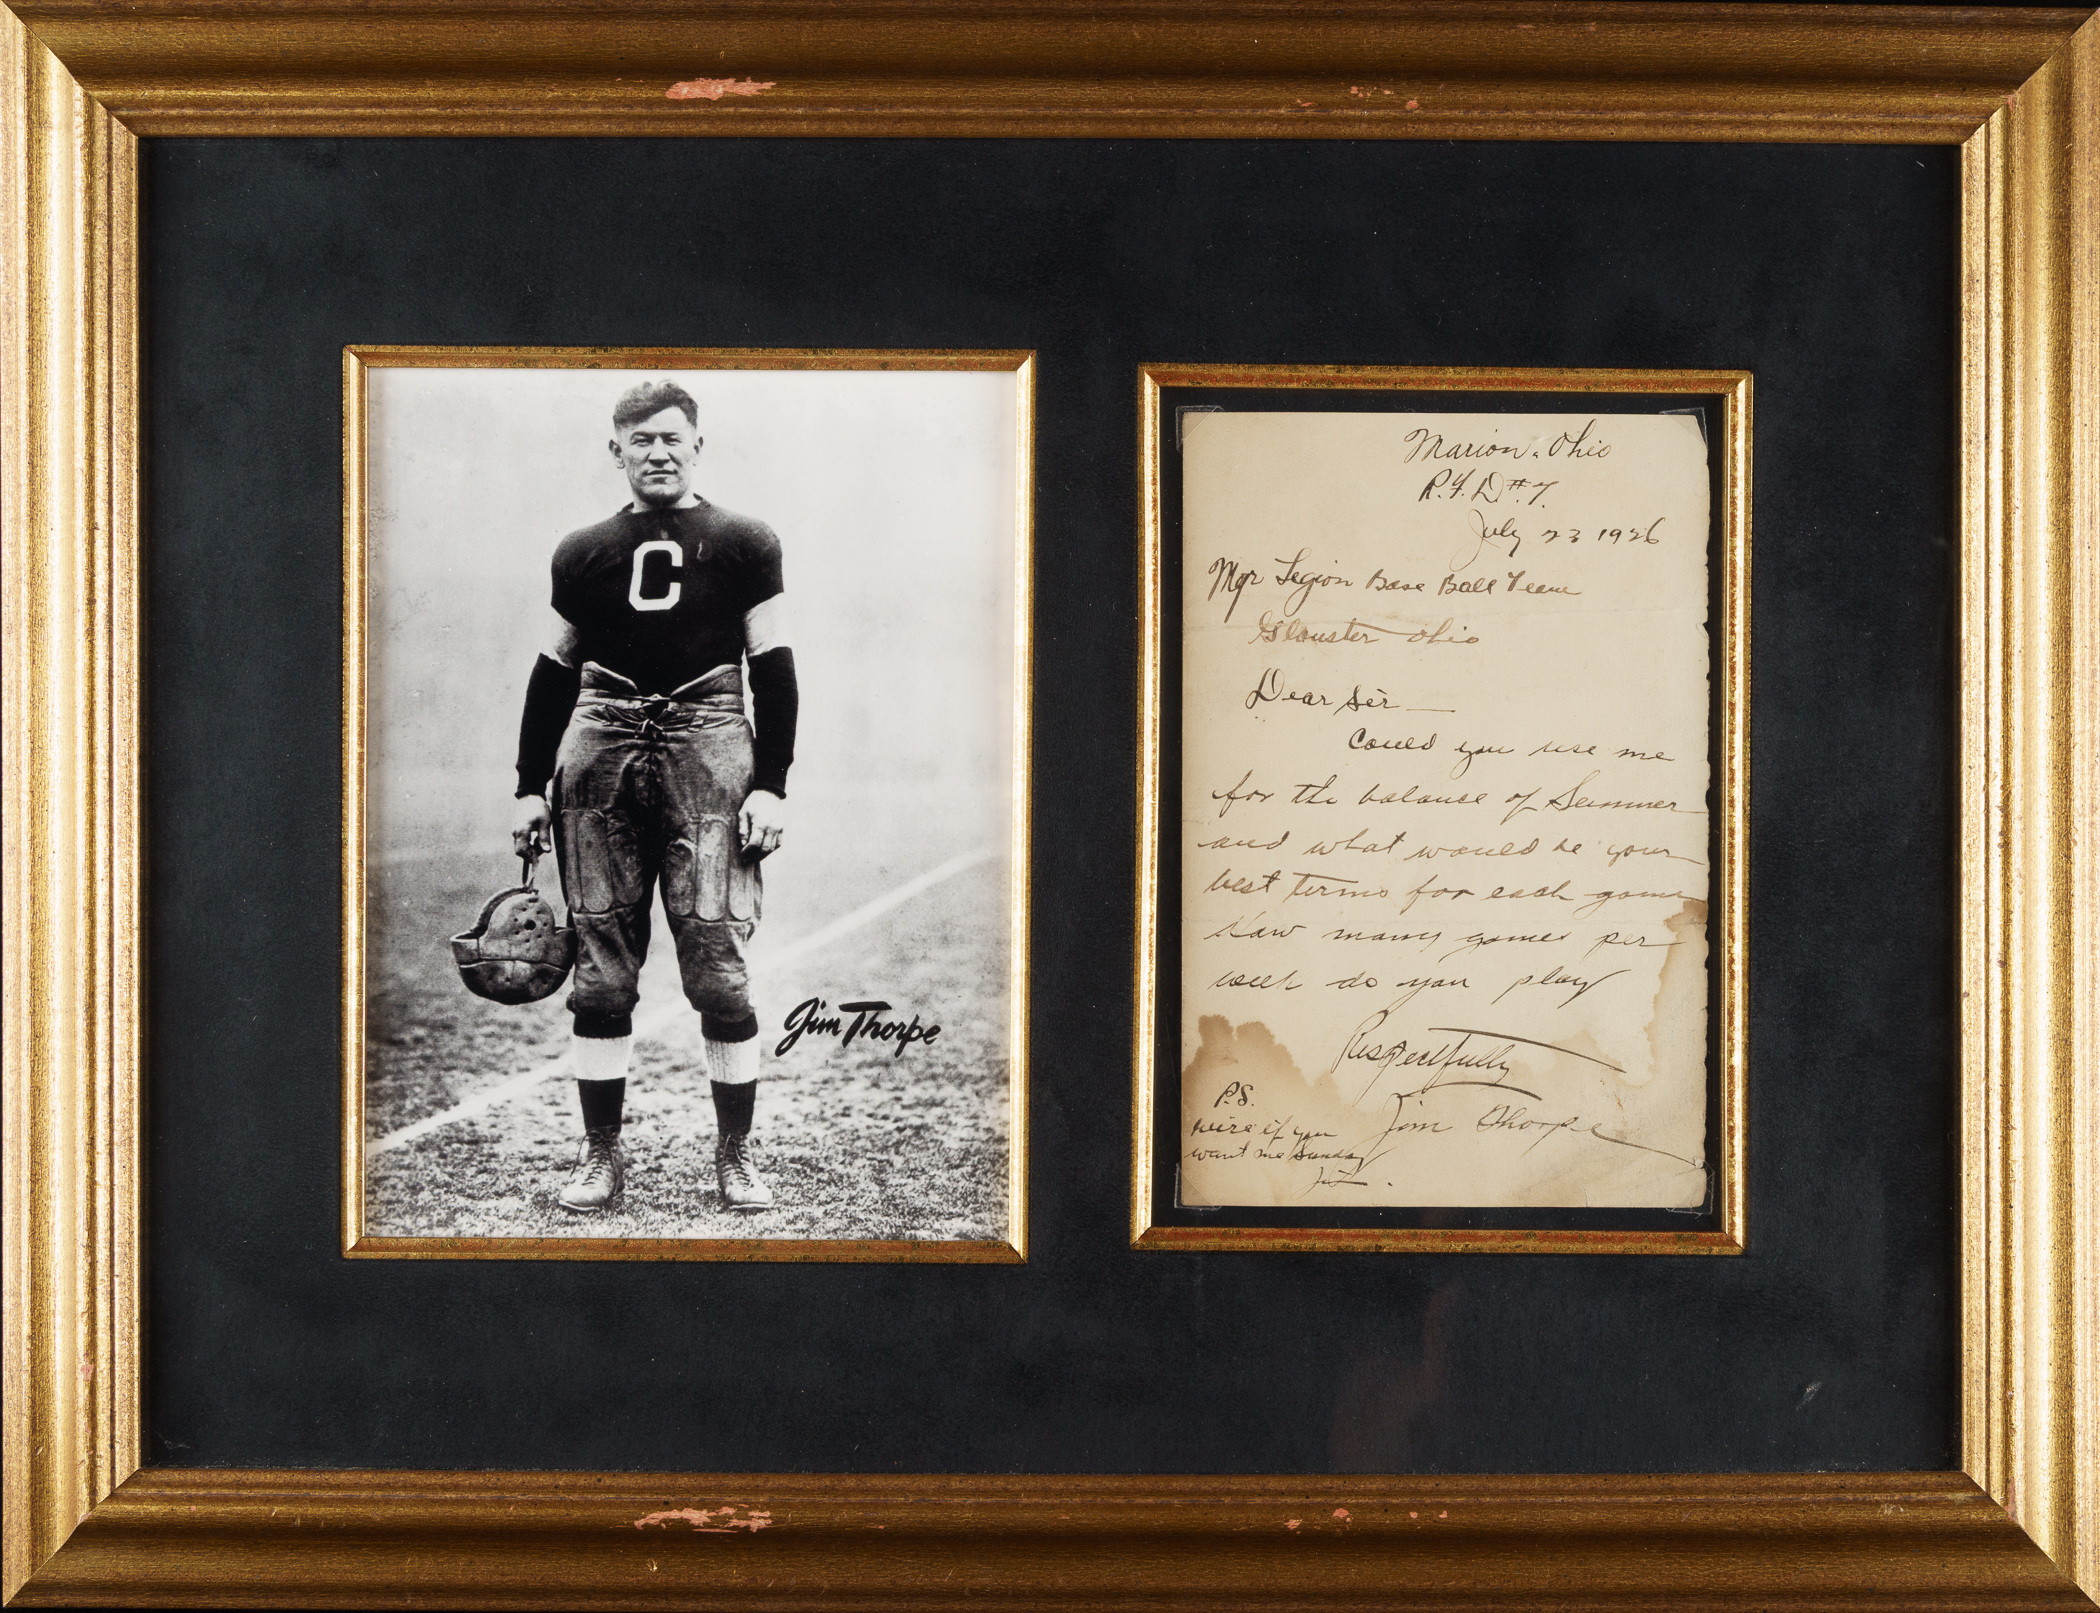 C
Jim Thorpe
Marion, Ohio
R.F.D #7.
July 23 1926
Mgr Legion Base Ball Team
Glouster Ohio
Dear Sir —
Could you use me
for the balance of Summer
and what would be your
best terms for each game
How many games per
week do you play
Respectfully
Jim Thorpe
P.S.
wire if you
want me Sunday
J.T.